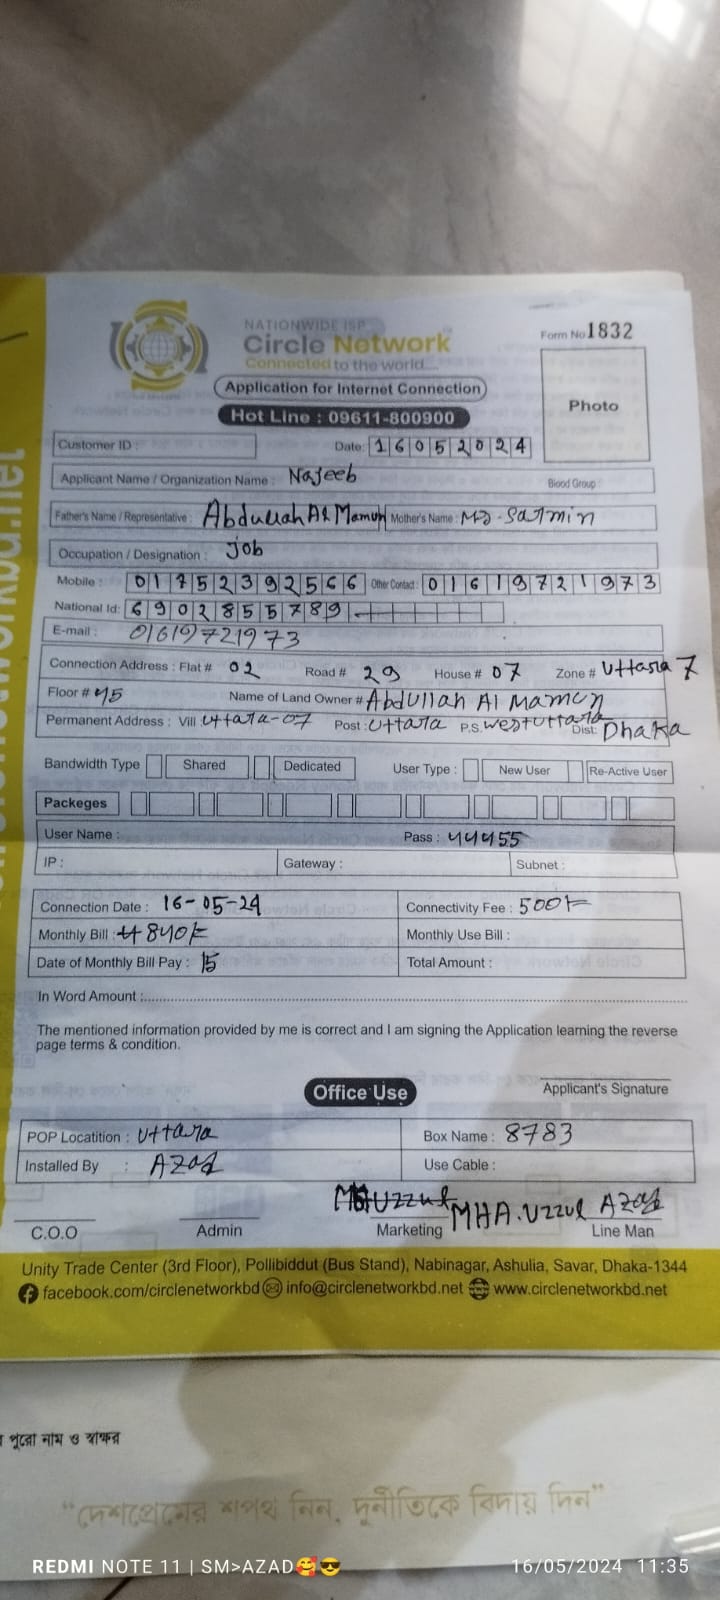 NATIONWIDE ISP
Circle Network
Connected to the world....
Form No 1832
Application for Internet Connection
Photo
Hot Line : 09611-800900
Customer ID :
Date: 16052024
Applicant Name / Organization Name : Najeeb
Blood Group :
Father's Name / Representative : Abdullah Al Mamun Mother's Name : MD. Sarmin
Occupation / Designation : job
Mobile : 01752392566 Other Contact : 01619721973
National Id: 6902855789
E-mail : 01619721973
Connection Address : Flat # 02 Road # 29 House # 07 Zone # Uttara 7
Floor # 45 Name of Land Owner # Abdullah Al Mamun
Permanent Address : Vill Uttara-07 Post : Uttara P.S. west uttara Dist: Dhaka
Bandwidth Type Shared Dedicated User Type : New User Re-Active User
Packeges
User Name : Pass : 44455
IP : Gateway : Subnet :
Connection Date : 16-05-24 Connectivity Fee : 500/=
Monthly Bill : 840/= Monthly Use Bill :
Date of Monthly Bill Pay : 15 Total Amount :
In Word Amount :
The mentioned information provided by me is correct and I am signing the Application learning the reverse
page terms & condition.
Office Use
Applicant's Signature
POP Locatition : Uttara Box Name : 8783
Installed By : AZad Use Cable :
MHA.Uzzul AZad
C.O.O Admin Marketing Line Man
Unity Trade Center (3rd Floor), Pollibiddut (Bus Stand), Nabinagar, Ashulia, Savar, Dhaka-1344
facebook.com/circlenetworkbd info@circlenetworkbd.net www.circlenetworkbd.net
পুরো নাম ও স্বাক্ষর
“দেশপ্রেমের শপথ নিন, দুর্নীতিকে বিদায় দিন”
REDMI NOTE 11 | SM>AZAD🥰😎
16/05/2024 11:35